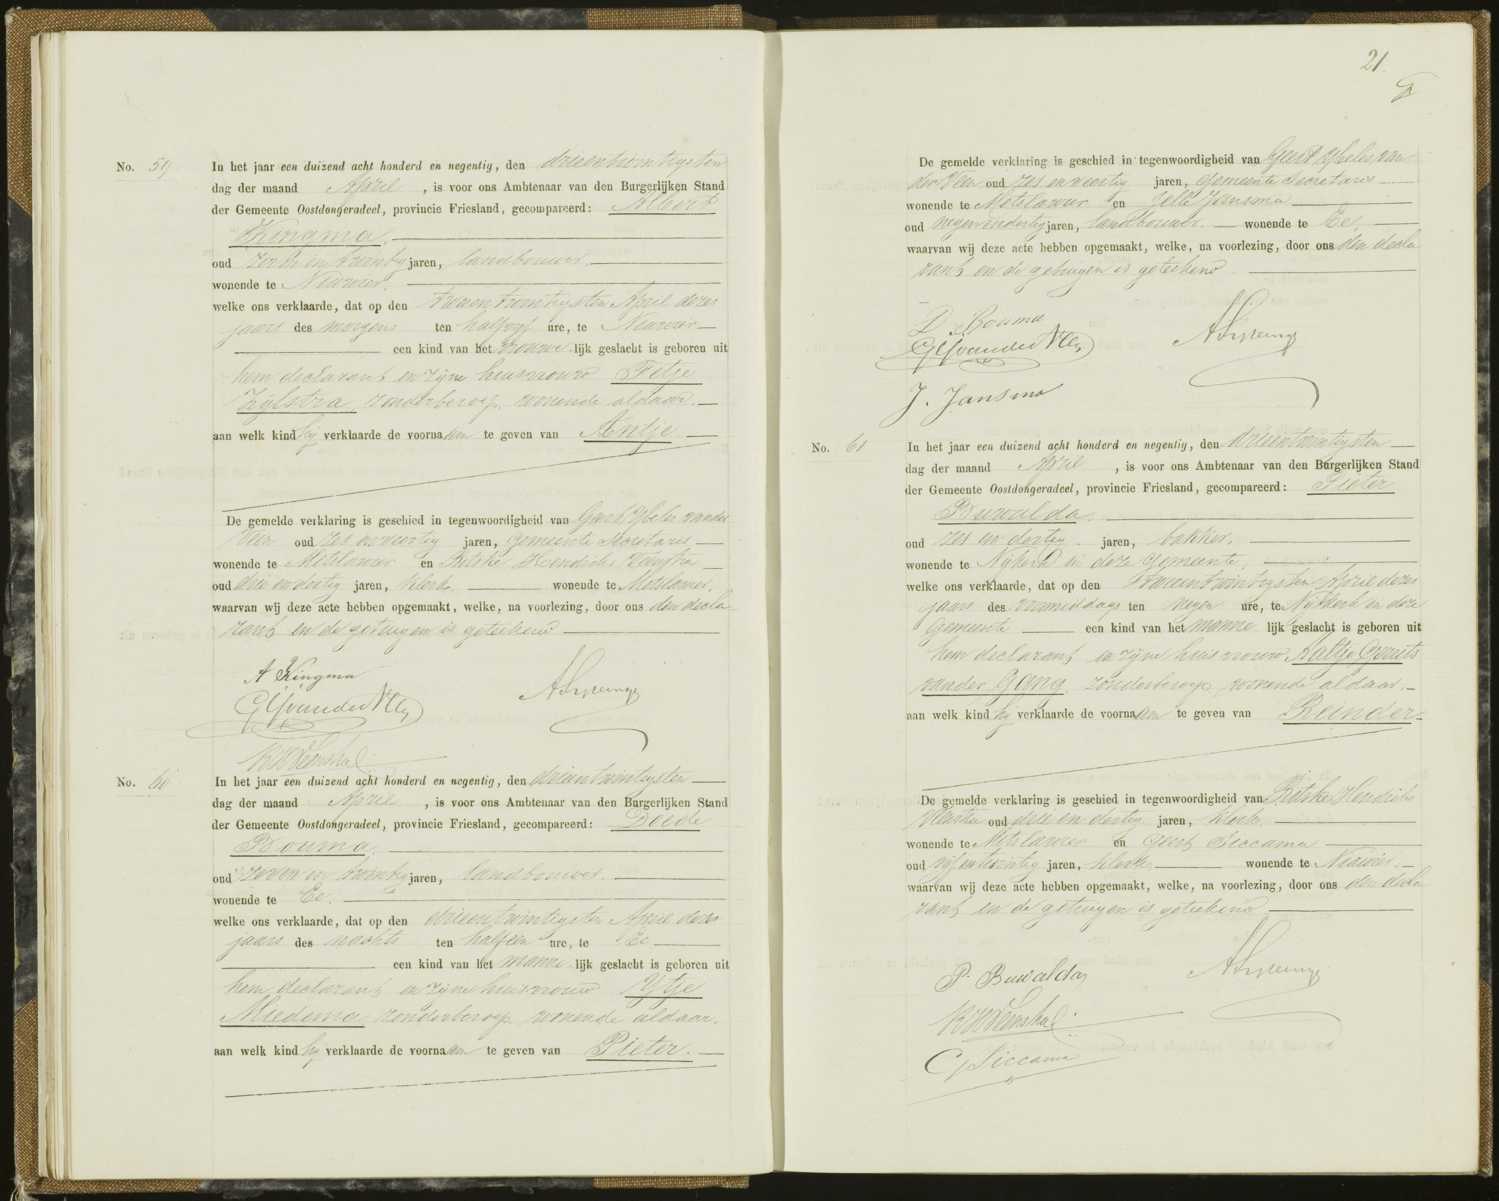 No. 59 In het jaar een duizend acht honderd en negentig, den drieentwintigsten
dag der maand April, is voor ons Ambtenaar van den Burgerlijken Stand
der Gemeente Oostdongeradeel, provincie Friesland, gecompareerd: Albert
Kingma
oud zes en twintig jaren, landbouwer.
wonende te Niawier.
welke ons verklaarde, dat op den tweeentwintigsten April dezes
jaars des morgens ten half ure, te Niawier
een kind van het vrouwelijk geslacht is geboren uit
hem declarant en zijne huisvrouw Fetje
Zijlstra zonder beroep, wonende aldaar.
aan welk kind hij verklaarde de voornamen te geven van Antje
De gemelde verklaring is geschied in tegenwoordigheid van Geert Ybeles van der
Veer oud zes en veertig jaren, gemeente Secretaris
wonende te Metslawier en Ritske Hendriks
oud drie en dertig jaren, klerk wonende te Metslawier,
waarvan wij deze acte hebben opgemaakt, welke, na voorlezing, door ons den decla
rant en de getuigen is geteekend
A Kingma
GY van der Veer
No. 60 In het jaar een duizend acht honderd en negentig, den drieentwintigsten
dag der maand April, is voor ons Ambtenaar van den Burgerlijken Stand
der Gemeente Oostdongeradeel, provincie Friesland, gecompareerd: Doede
Bouma
oud zeven en twintig jaren, landbouwer.
wonende te Ee.
welke ons verklaarde, dat op den drieentwintigsten April dezes
jaars des nachts ten half een ure, te Ee
een kind van het mannelijk geslacht is geboren uit
hem declarant en zijne huisvrouw Ytje
Miedema zonder beroep, wonende aldaar.
aan welk kind hij verklaarde de voornamen te geven van Pieter.
21.
De gemelde verklaring is geschied in tegenwoordigheid van Geert Ybeles van
der Veer oud zes en veertig jaren, gemeente Secretaris
wonende te Metslawier en Jelle Jansma
oud negenendertig jaren, landbouwer wonende te Ee,
waarvan wij deze acte hebben opgemaakt, welke, na voorlezing, door ons den decla
rant en de getuigen is geteekend
D Bouma
GY van der Veer
J. Jansma
No. 61 In het jaar een duizend acht honderd en negentig, den drieentwintigsten
dag der maand April, is voor ons Ambtenaar van den Burgerlijken Stand
der Gemeente Oostdongeradeel, provincie Friesland, gecompareerd: Pieter
Buwalda
oud zes en dertig jaren, bakker.
wonende te Nijkerk in deze gemeente,
welke ons verklaarde, dat op den tweeentwintigsten April dezes
jaars des voormiddags ten negen ure, te Nijkerk in deze
gemeente een kind van het mannelijk geslacht is geboren uit
hem declarant en zijne huisvrouw Aaltje Gerrits
van der Gang zonder beroep, wonende aldaar.
aan welk kind hij verklaarde de voornamen te geven van Reinder.
De gemelde verklaring is geschied in tegenwoordigheid van Ritske Hendriks
oud drie en dertig jaren, klerk
wonende te Metslawier en Geert Siccama
oud vijfentwintig jaren, klerk wonende te Niawier,
waarvan wij deze acte hebben opgemaakt, welke, na voorlezing, door ons den decla
rant en de getuigen is geteekend
P. Buwalda
G Siccama